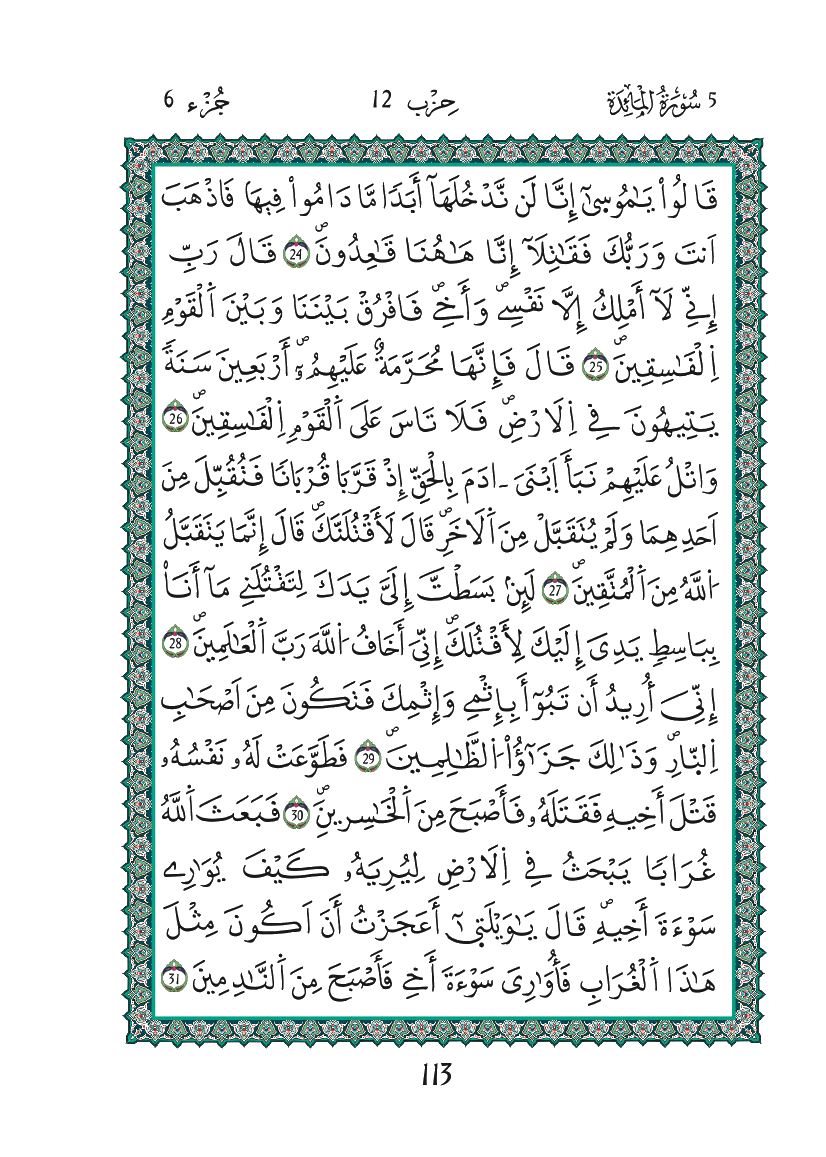 5 سُورَةُ الْمَائِدَة
حِزْب 12
جُزْء 6
قَالُواْ يَٰمُوسىٰٓ إِنَّا لَن نَّدْخُلَهَآ أَبَداٗ مَّا دَامُواْ فِيهَا فَاذْهَبَ
اَنتَ وَرَبُّكَ فَقَٰتِلَآ إِنَّا هَٰهُنَا قَٰعِدُونَۖ 24 قَالَ رَبِّ
إِنِّے لَآ أَمْلِكُ إِلَّا نَفْسِے وَأَخِےۖ فَافْرُقْ بَيْنَنَا وَبَيْنَ اَ۬لْقَوْمِ
اِ۬لْفَٰسِقِينَۖ 25 قَالَ فَإِنَّهَا مُحَرَّمَةٌ عَلَيْهِمُۥٓۖ أَرْبَعِينَ سَنَةٗ
يَتِيهُونَ فِے اِ۬لَارْضِۖ فَلَا تَاسَ عَلَى اَ۬لْقَوْمِ اِ۬لْفَٰسِقِينَۖ 26
وَاتْلُ عَلَيْهِمْ نَبَأَ اَ۪بْنَىَ ءَادَمَ بِالْحَقِّ إِذْ قَرَّبَا قُرْبَاناٗ فَتُقُبِّلَ مِنَ
اَحَدِهِمَا وَلَمْ يُتَقَبَّلْ مِنَ اَ۬لَاخَرِۖ قَالَ لَأَقْتُلَنَّكَۖ قَالَ إِنَّمَا يَتَقَبَّلُ
اَ۬للَّهُ مِنَ اَ۬لْمُتَّقِينَۖ 27 لَئِنۢ بَسَطتَّ إِلَيَّ يَدَكَ لِتَقْتُلَنِے مَآ أَنَا۠
بِبَاسِطٖ يَدِىَ إِلَيْكَ لِأَقْتُلَكَۖ إِنِّيَ أَخَافُ اُ۬للَّهَ رَبَّ اَ۬لْعَٰلَمِينَۖ 28
إِنِّيَ أُرِيدُ أَن تَبُوٓأَ بِإِثْمِے وَإِثْمِكَ فَتَكُونَ مِنَ اَصْحَٰبِ
اِ۬لنّ۪ارِۖ وَذَٰلِكَ جَزَٰٓؤُاْ اُ۬لظَّٰلِمِينَۖ 29 فَطَوَّعَتْ لَهُۥ نَفْسُهُۥ
قَتْلَ أَخِيهِ فَقَتَلَهُۥ فَأَصْبَحَ مِنَ اَ۬لْخَٰسِرِينَۖ 30 فَبَعَثَ اَ۬للَّهُ
غُرَاباٗ يَبْحَثُ فِے اِ۬لَارْضِ لِيُرِيَهُۥ كَيْفَ يُوَٰرِے
سَوْءَةَ أَخِيهِۖ قَالَ يَٰوَيْلَت۪ىٰٓ أَعَجَزْتُ أَنَ اَكُونَ مِثْلَ
هَٰذَا اَ۬لْغُرَابِ فَأُوَٰرِىَ سَوْءَةَ أَخِے فَأَصْبَحَ مِنَ اَ۬لنَّٰدِمِينَ 31
113